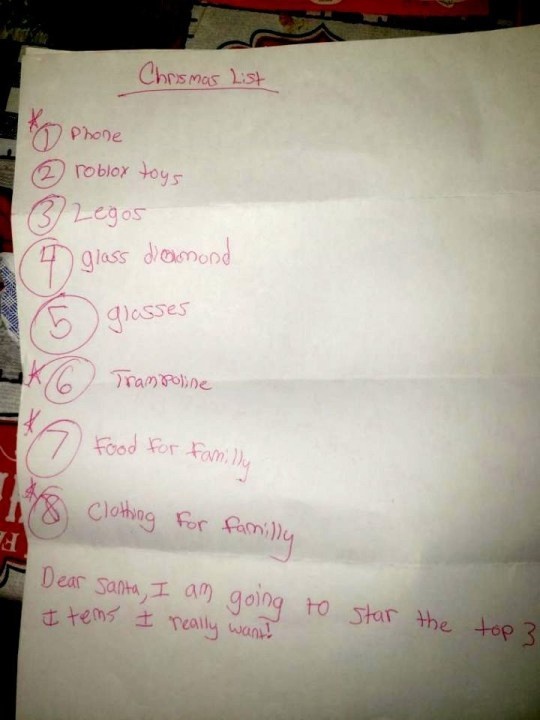 Chrismas List
* 1 Phone
2 roblox toys
3 Legos
4 glass diamond
5 glasses
* 6 Trampoline
* 7 Food for familly
* 8 Clothing for familly
Dear Santa, I am going to star the top 3
Items I really want!